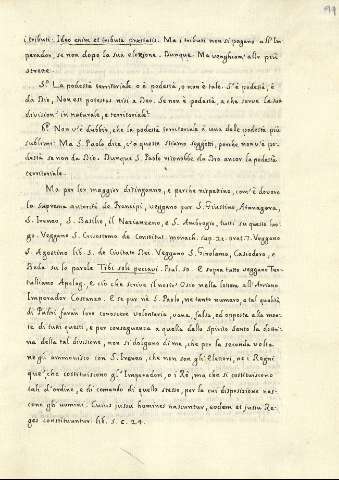 99
i tributi: Ideo enim et tributa praestatis. Ma i tributi non si pagano all' Im
perador, se non dopo la sua elezione. Dunque. Ma venghiam' allo più
strene.
5.° La podestà territoriale o è podestà, o non è tale. S' è podestà, è
da Dio, Non est potestas nisi a Deo. Se non è podestà, a che serve la sua
division' in naturale, e territoriale?
6.° Non v' è dubbio, che la podestà territoriale è una delle podestà più
sublimi. Ma S. Paolo dice, ch' a queste stiamo soggetti, perché non v' è po
destà se non da Dio. Dunque S. Paolo riconobbe da Dio ancor la podestà
territoriale.
Ma per lor maggior disinganno, e perché rispettino, com' è dovere
la suprema autorità de' Principi, veggano pur S. Giustino, Atenagora,
S. Ireneo, S. Basilio, il Nazianzeno, e S. Ambrogio, tutti su questo luo
go. Veggano S. Crisostomo de Constitut. monach. cap. 21. orat. 7. Veggano
S. Agostino lib. 5. de Civitate Dei. Veggano S. Girolamo, Casiodoro, e
Beda su le parole Tibi soli peccavi. Psal. 50. E sopra tutto veggano Ter
tulliano Apolog. e ciò che scrive il nostro Osio nella lettera all' Ariano
Imperador Costanzo. E se pur nè S. Paolo, nè tanto numero, e tal qualità
di Padri faran loro conoscere volontaria, vana, falsa, ed opposta alla mon
te di tutti questi, e per conseguenza a quella dello Spirito Santo la dottri
na della tal divisione, non si dolgano di me, che per la seconda volta
ne gli ammonisco con S. Ireneo, che non son gli Elettori, nè i Regni
que', che costituiscono gl' Imperadori, o i Rè, ma che si costituiscono
tali d' ordine, e di comando di quello stesso, per la cui disposizione nas
cono gli uomini. Cuius jussu homines nascuntur, eodem et jussu Re
ges constituuntur. lib. 5. c. 24.